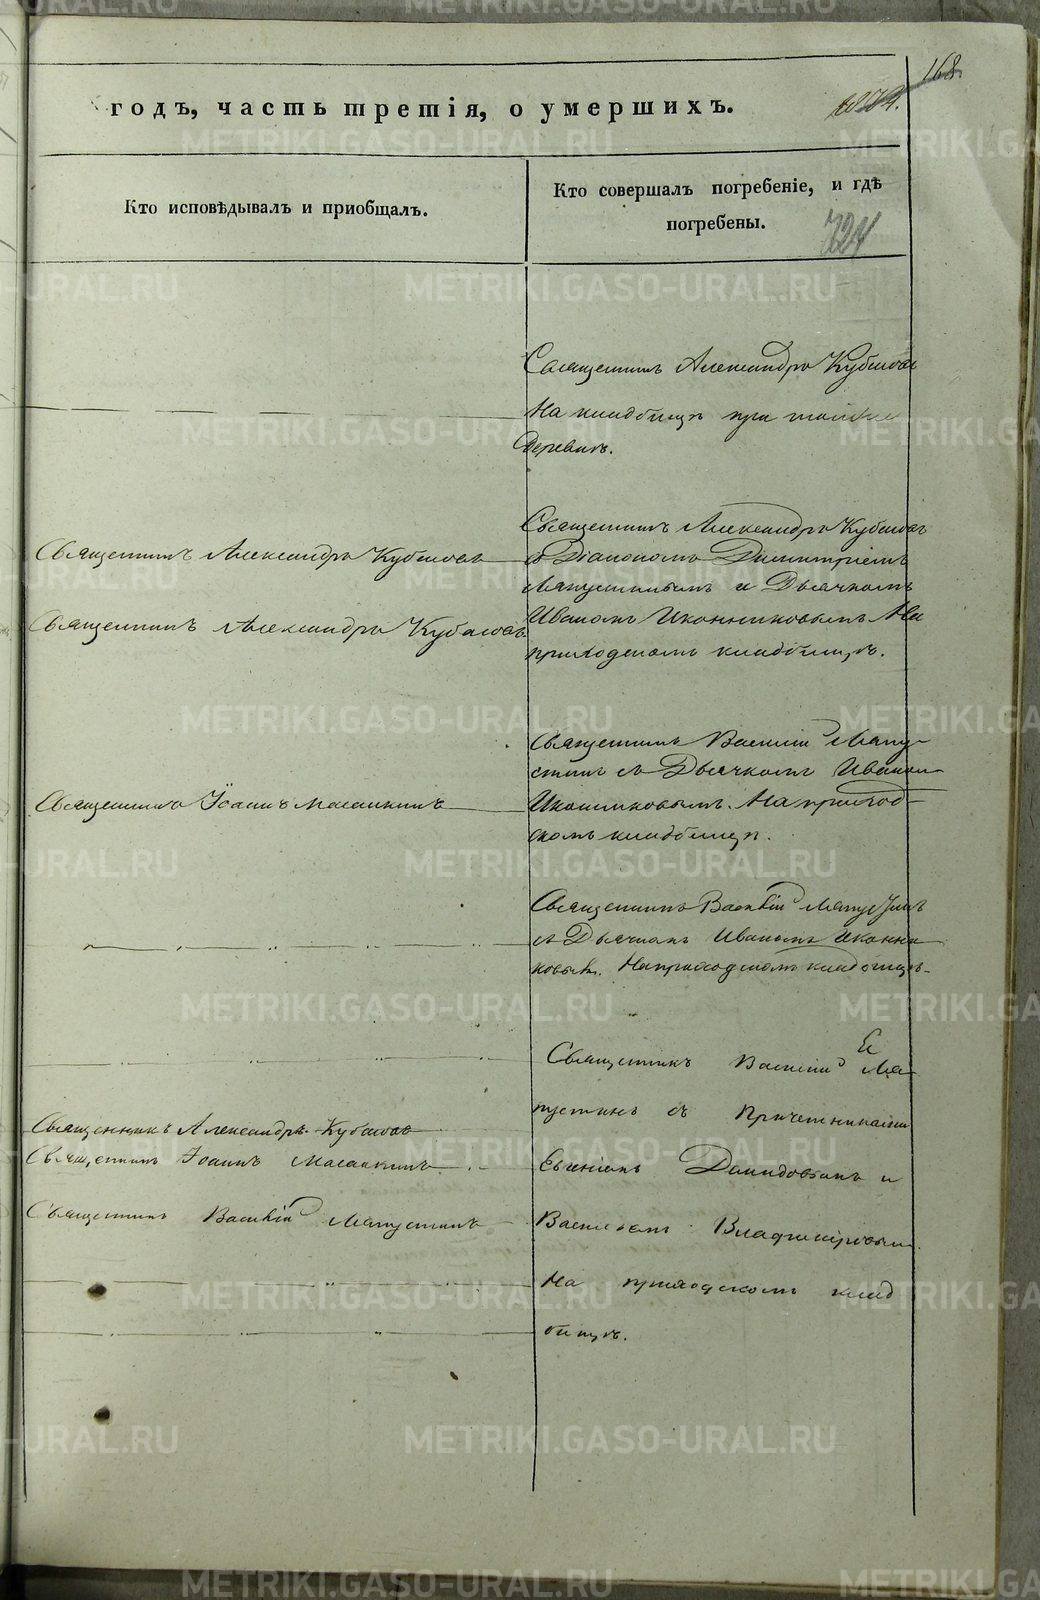 168
годъ, часть третія, о умершихъ.
Кто исповѣдывалъ и приобщалъ.
Кто совершалъ погребеніе, и гдѣ
погребены.
324
Священникъ Александръ Кубасовъ
На кладбищѣ при
деревнѣ.
Священникъ Александръ Кубасовъ
Священникъ Александръ Кубасовъ
Священникъ Александръ Кубасовъ
съ Діакономъ Димитріемъ
Мапустинымъ и Дьячкомъ
Иваномъ Иконниковымъ На
приходскомъ кладбищѣ.
Священникъ Іоаннъ
Священникъ Василій Мапу-
стинъ съ Дьячкомъ Иваном
Иконниковымъ. На приход-
скомъ кладбищѣ.
Священникъ Василій Мапустинъ
съ Дьячкомъ Иваномъ Иконни
ковымъ. На приходскомъ кладбищѣ.
Священникъ Александръ Кубасовъ
Священникъ Іоаннъ
Священникъ Василій Мапустинъ
Священникъ Василій Е Ма-
пустинъ съ Причетниками
Евгеніемъ Давидовымъ и
Василіемъ Владиміровым
На приходскомъ клад
бищѣ.
METRIKI.GASO-URAL.RU